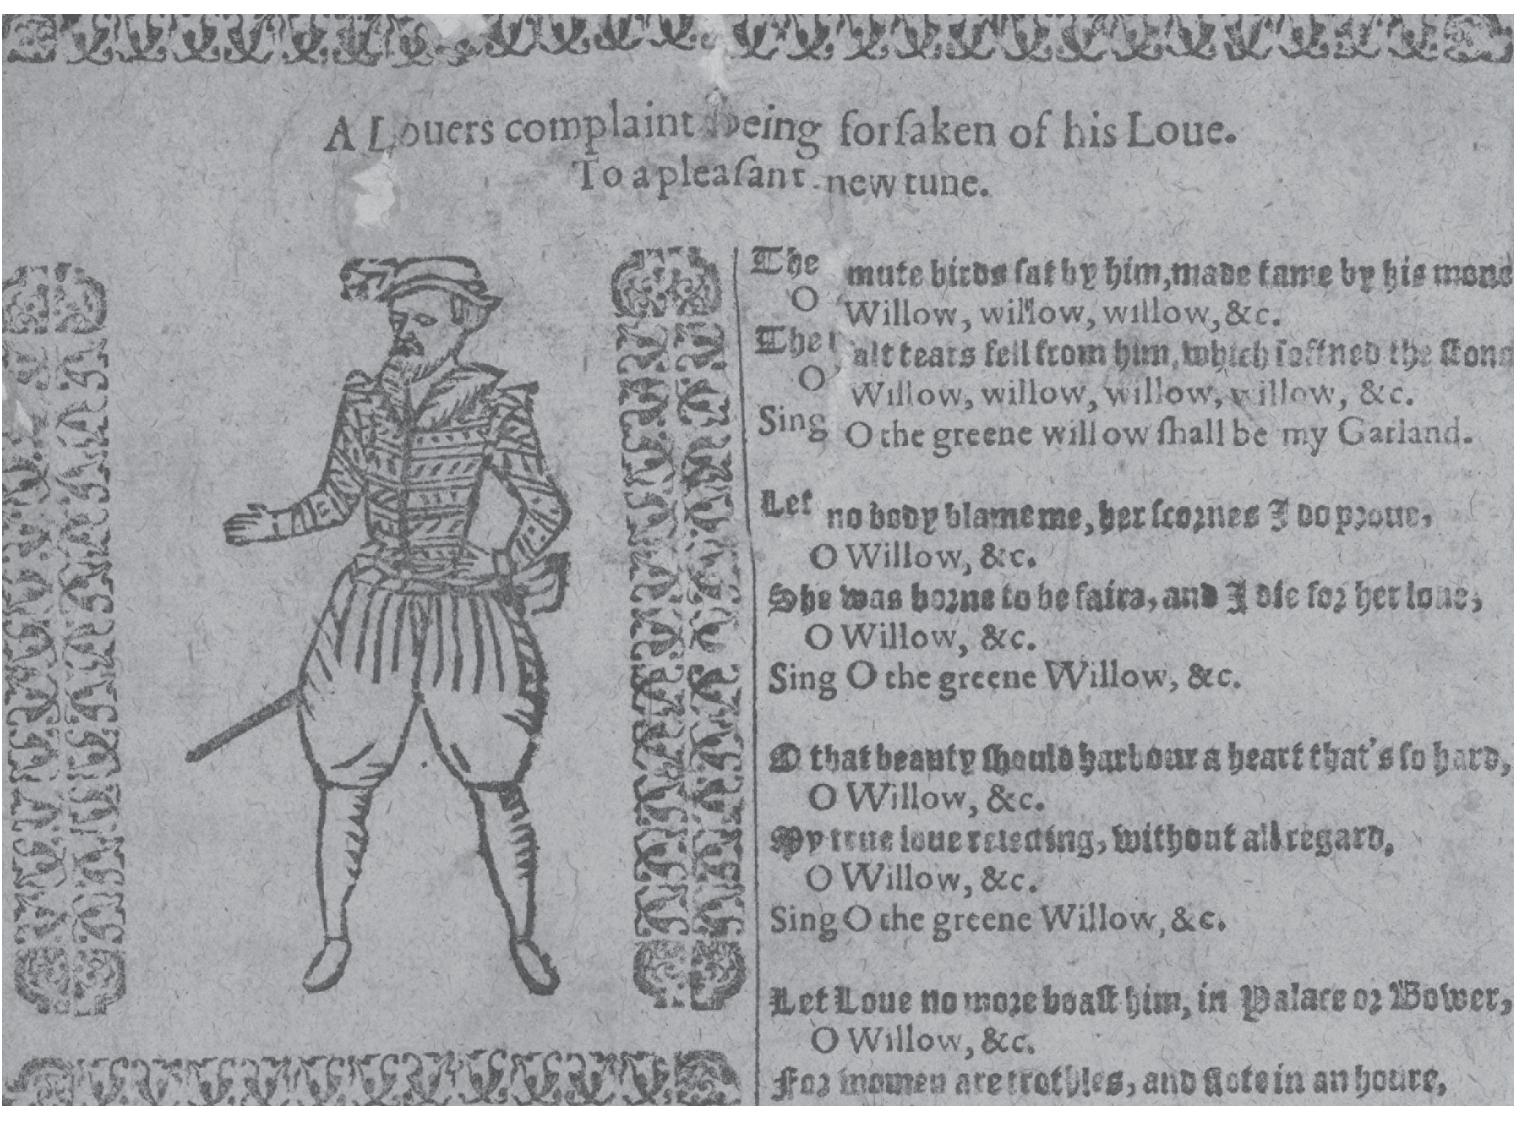 A Louers complaint being forſaken of his Loue.
To a pleaſant new tune.
The mute birds ſat by him, made tame by his mone
O Willow, willow, willow, &c.
The ſalt tears fell from him, which ſoftned the ſtone
O Willow, willow, willow, willow, &c.
Sing O the greene willow ſhall be my Garland.
Let no body blame me, her ſcornes I do proue,
O Willow, &c.
She was borne to be faire, and I die for her loue,
O Willow, &c.
Sing O the greene Willow, &c.
O that beauty ſhould harbour a heart that's ſo hard,
O Willow, &c.
My true loue reiecting, without all regard,
O Willow, &c.
Sing O the greene Willow, &c.
Let Loue no more boaſt him, in Palace or Bower,
O Willow, &c.
For women are and flote in an houre,